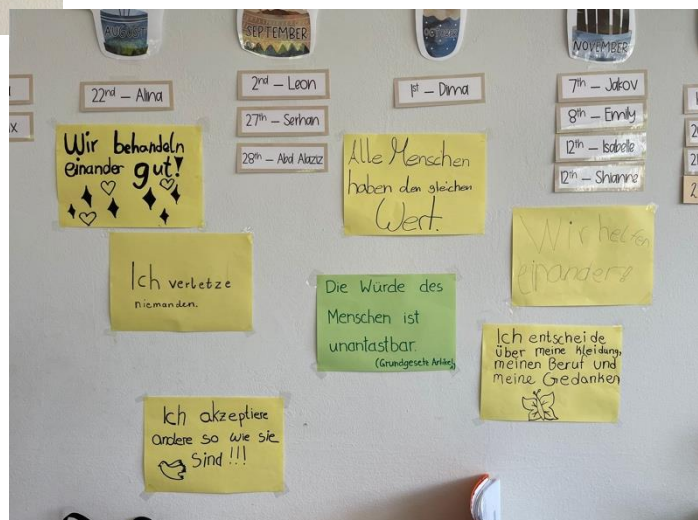 AUGUST
SEPTEMBER
OCTOBER
NOVEMBER
22nd – Alina
2nd – Leon
27th – Serhan
28th – Abd Alaziz
1st – Dima
7th – Jakov
8th – Emily
12th – Isabelle
12th – Shianne
Wir behandeln
einander gut!
Alle Menschen
haben den gleichen
Wert.
Wir helfen
einander!
Ich verletze
niemanden.
Die Würde des
Menschen ist
unantastbar.
(Grundgesetz Artikel
Ich entscheide
über meine Kleidung,
meinen Beruf und
meine Gedanken
Ich akzeptiere
andere so wie sie
Sind !!!